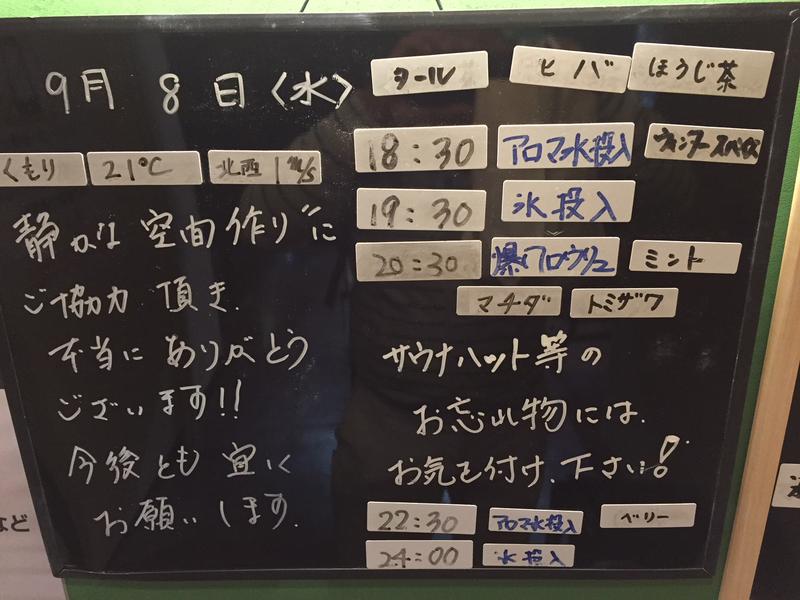 9月 8日〈水〉
くもり 21℃ 北西 1m/s
静かな空間作りに
ご協力頂き
本当にありがとう
ございます!!
今後とも宜しく
お願いします.
タール ヒバ ほうじ茶
18:30 アロマ水投入 ウィンタースペイス
19:30 氷投入
20:30 爆風ロウリュ ミント
マチダ トミザワ
サウナハット等の
お忘れ物には
お気を付け下さい!
22:30 アロマ水投入 ベリー
24:00 氷投入
など